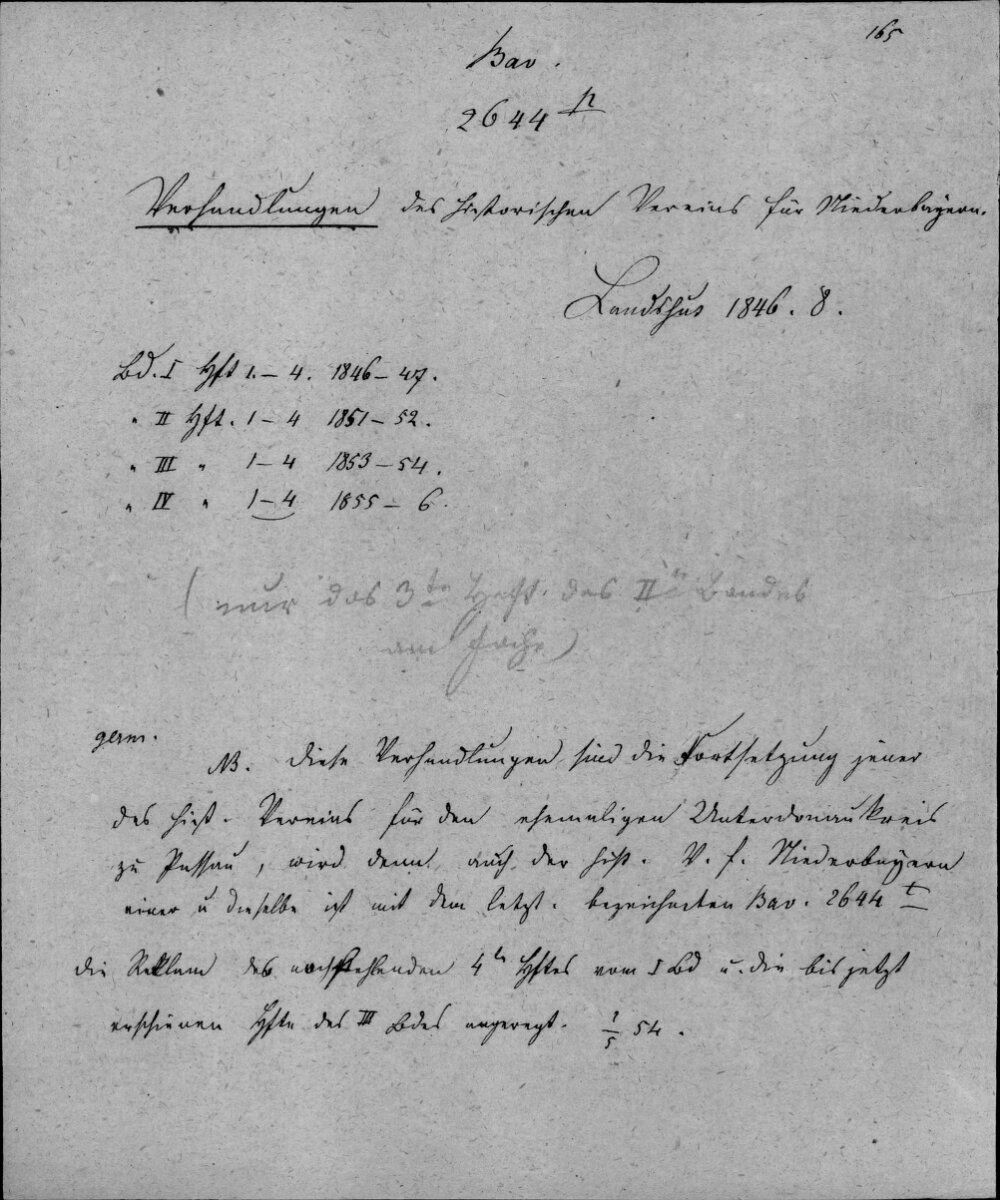 165
Bav.
2644 p
Verhandlungen des historischen Vereins für Niederbayern.
Landshut 1846. 8.
Bd. I Hft 1.–4. 1846–47.
" II Hft. 1–4 1851–52.
" III " 1–4 1853–54.
" IV " 1–4 1855–6.
(nur das 3te Heft des IIn Bandes
am Fache)
germ.
NB. Diese Verhandlungen sind die Fortsetzung jener
des hist. Vereins für den ehemaligen Unterdonaukreis
zu Passau, wird denn auch der hist. V. f. Niederbayern
einer u dieselbe ist mit dem letzt. bezeichneten Bav. 2644 t
die Reklam des noch fehlenden 4ten Hftes vom I Bd u. die bis jetzt
erschienen Hfte des III Bdes angeregt. 1/5 54.